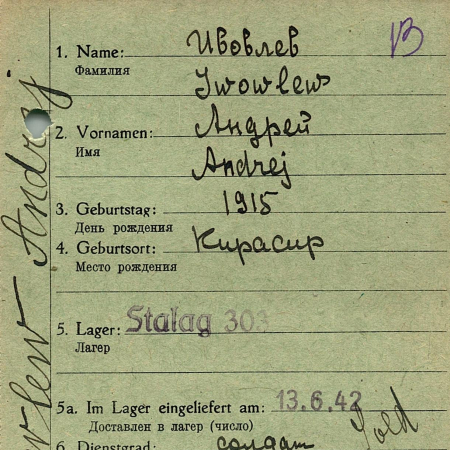 1. Name: Ивовлев
Фамилия
Iwowlew
2. Vornamen: Андрей
Имя
Andrej
3. Geburtstag: 1915
День рождения
4. Geburtsort: Кирасир
Место рождения
5. Lager: Stalag 303
Лагер
5a. Im Lager eingeliefert am: 13.6.42
Доставлен в лагер (число)
Sold
6. Dienstgrad: солдат
wlew Andrej